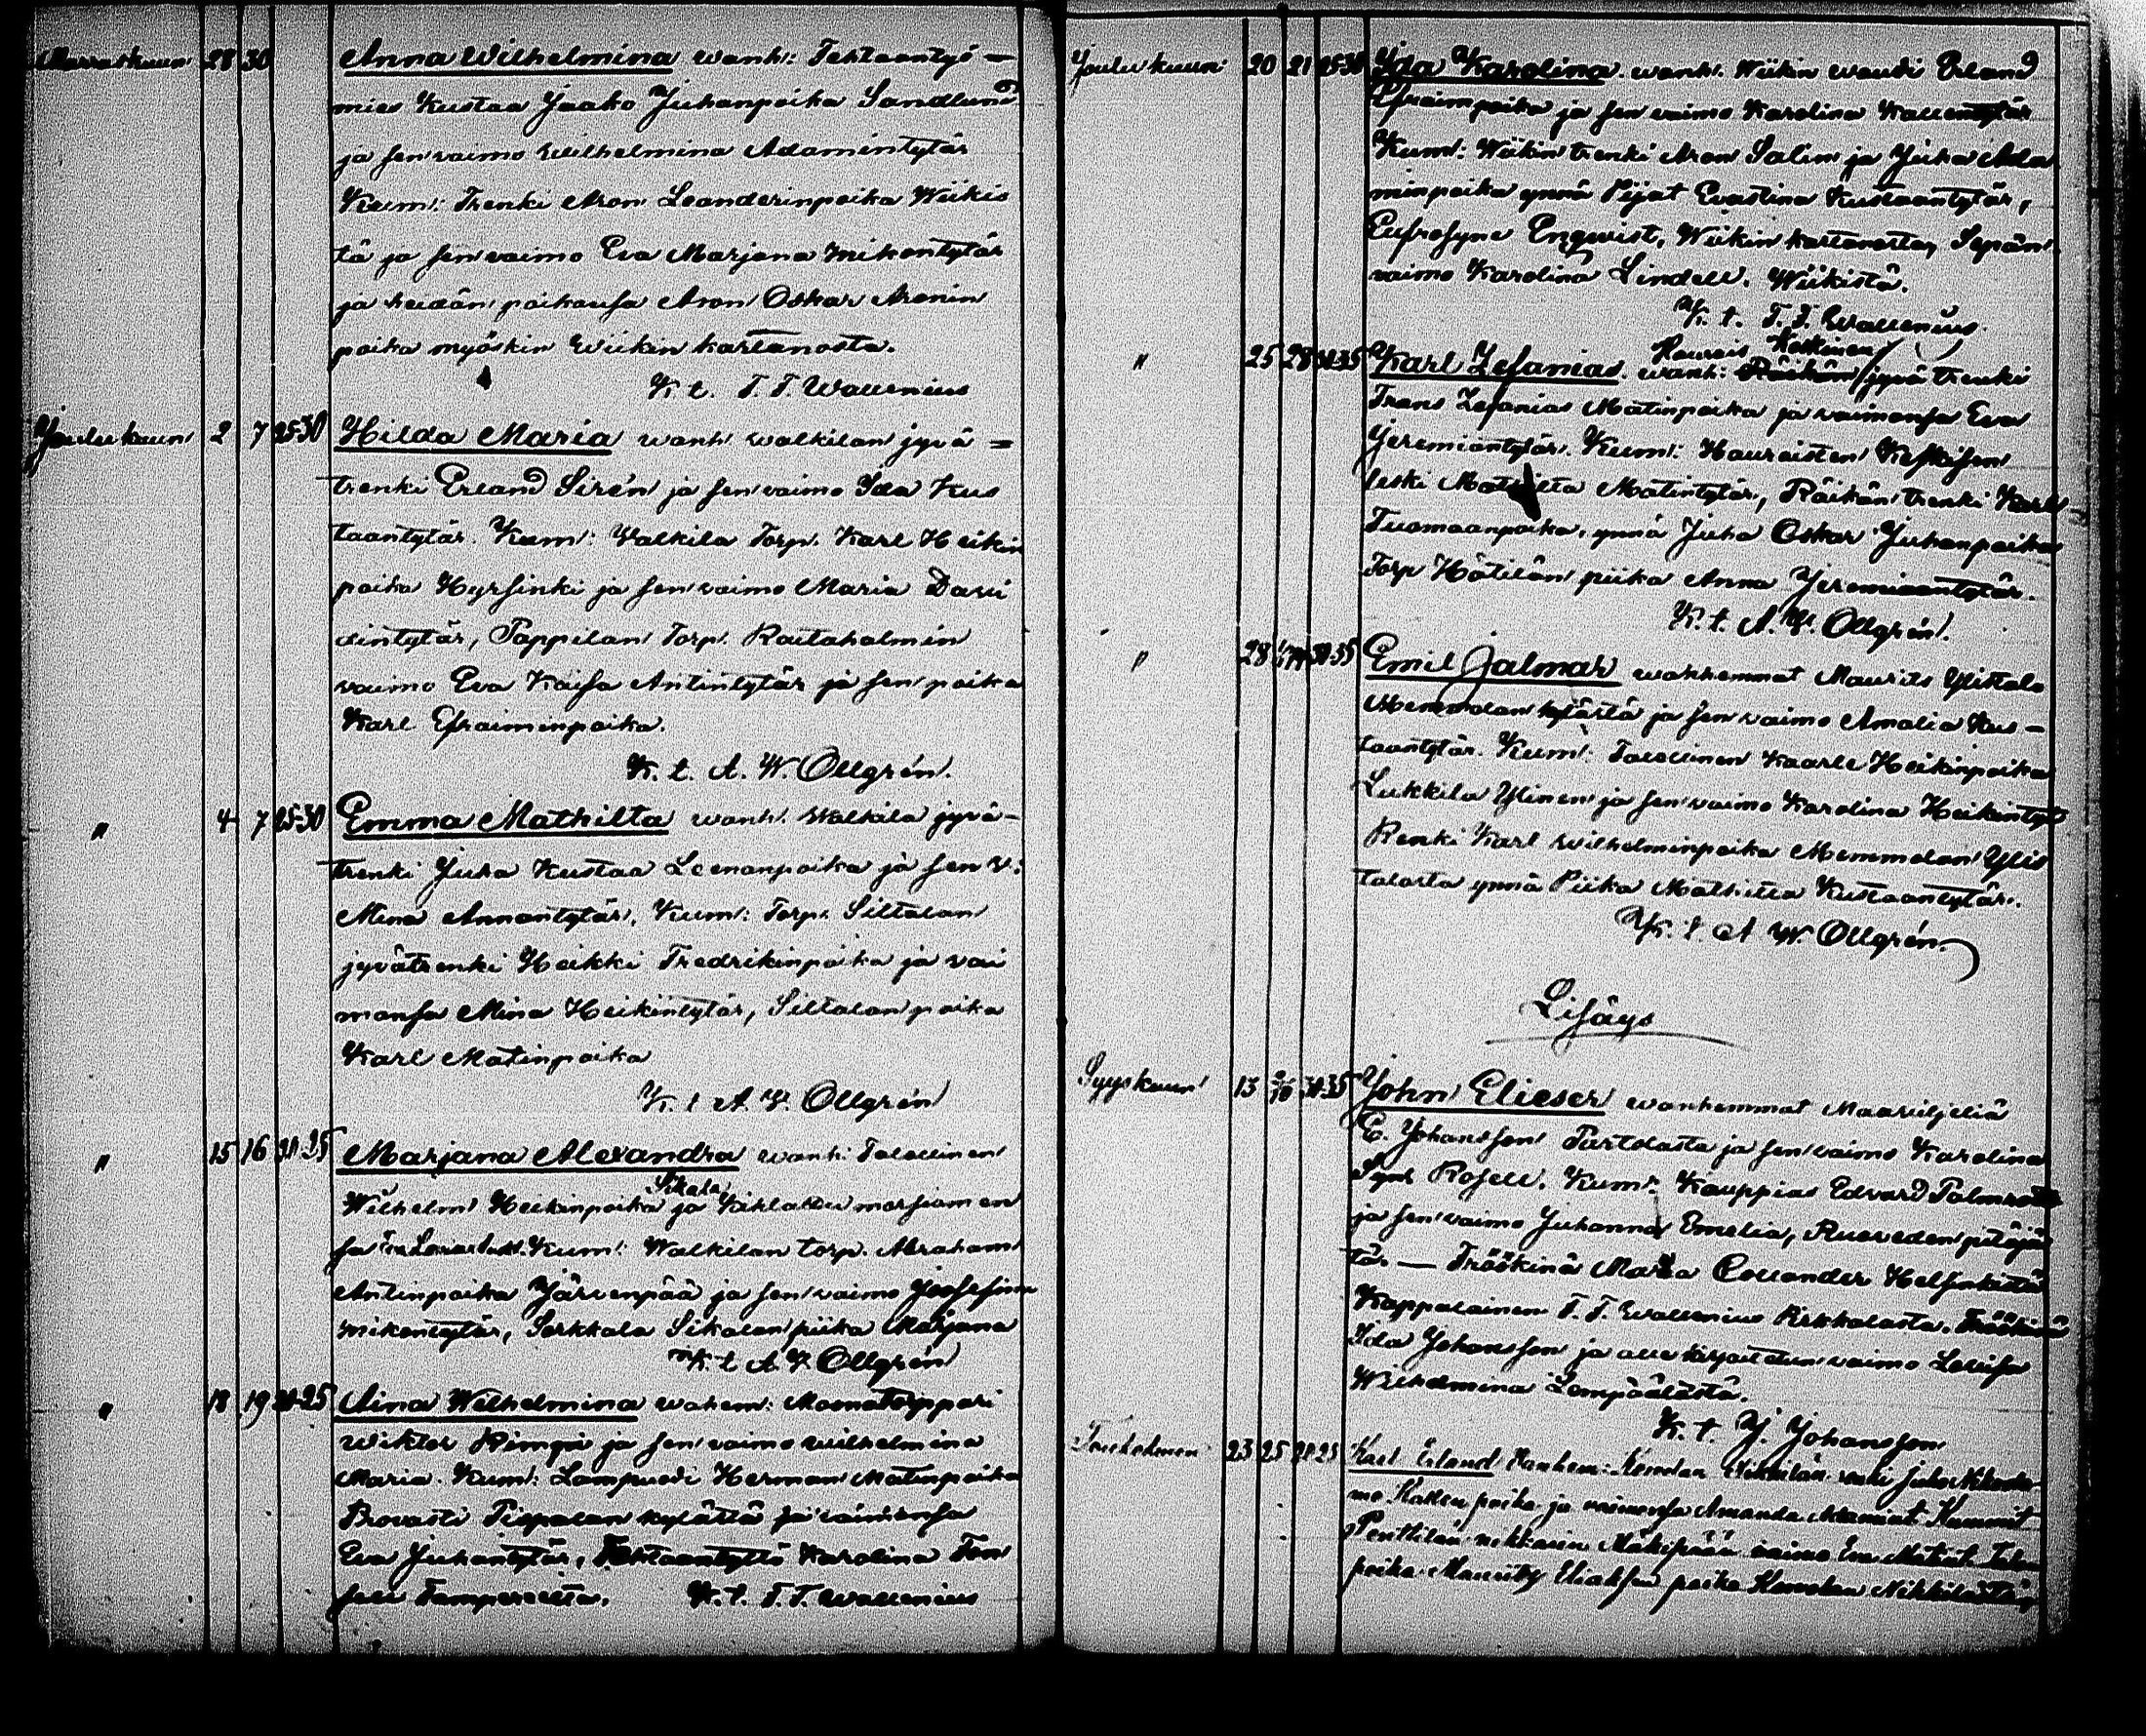 Marraskuun 28 30 Anna Wilhelmina wanh: Tehtaantyö-
mies Kustaa Jaako Juhanpoika Sandlund
ja sen vaimo Wilhelmina Adamintytär
Kum: Trenki Aron Leanderinpoika Wiikis
tä ja sen vaimo Eva Marjana Mikontytär
ja heidän poikansa Aron Oskar Aronin
poika myöskin Wiikin kartanosta.
K. t. F. F. Wallenius
Joulukuun 2 7 25-30 Hilda Maria wanh. Walkilan jyvä=
trenki Erland Sirén ja sen vaimo Ida Kus
taantytär. Kum: Walkila Torp. Karl Heikin
poika Hyrsinki ja sen vaimo Maria Davi
dintytär, Pappilan Torp. Raitaholmin
vaimo Eva Kaisa Antintytär ja sen poika
Karl Efraiminpoika.
K. t. A. W. Ollgrén.
" 4 7 25-30 Emma Mathilta wanh. Walkila jyvä-
trenki Juha Kustaa Leenanpoika ja sen v:
Mina Annantytär. Kum: Torp. Siltalan
jyvätrenki Heikki Fredrikinpoika ja vai
monsa Mina Heikintytär, Siltalan poika
Karl Matinpoika
K. t. A. W. Ollgrén
" 15 16 Marjana Alexandra wanh: Talollinen
Sikala
Wilhelm Heikinpoika ja Kihlattu morsiamen
sa Kum: Walkilan torp. Abraham
Antinpoika Järvenpää ja sen vaimo Josefina
Mikontytär, Sorkkala Sikalan piika Marjana
K. t. A. W. Ollgrén
" 18 19 Aina Wilhelmina wahem: Maanatorppari
Wiktor Rimpi ja sen vaimo Wilhelmina
Maria. Kum: Lampuodi Herman Matinpoika
Provasti Pispalan kylästä ja vaimonsa
Eva Juhantytär, Tehtaantyttö Karolina Fon
sell Tampereelta. K. t. F. F. Wallenius
Joulukuun 20 21 25-30 Ida Karolina. wanh. Wiikin woudi Erland
Efraimpoika ja sen vaimo Karolina Kallentytär
Kum: Wiikin trenki Aron Salin ja Juha Ada
minpoika ynnä Piijat Evastina Kustaantytär,
Eufrosyne Enqvist, Wiikin kartanosta, Sepän
vaimo Karolina Lindell. Wiikistä.
K. t. F. F. Wallenius.
Keskinen
" 25 28 30-35 Karl Zefanias. wanh: jyvä trenki
Frans Zefanias Matinpoika ja vaimonsa Eva
Jeremiantytär. Kum: Hauraisten Keskisen
leski Mathilta Matintytär, Räikän trenki Karl
Tuomaanpoika, ynnä Juha Oskar Juhanpoika
Torp Hätilän piika Anna Jeremiaantytär.
K. t. A. W. Ollgrén.
" 28 30-35 Emil Jalmar wanhemmat Maurits Ylistalo
Memmolan kylästä ja sen vaimo Amalia Kus-
taantytär. Kum: Talollinen Kaarle Heikinpoika
Lukkila Ylinen ja sen vaimo Karolina Heikintyt
Renki Karl Wilhelminpoika Memmolan Ylis
talosta ynnä Piika Mathilta Kustaantytär.
K. t. A. W. Ollgrén.
Lisäys
Syyskuun 13 30-35 John Elieser wanhemmat Maanviljeliä
E. Johansson Partolasta ja sen vaimo Karolina
Rosell. Kum: Kauppias Edvard Palmroth
ja sen vaimo Juhanna Emelia, Ruoveden pitäjäs
tä. — Fröökinä Maria Collander Helsinkistä
Kappalainen F. F. Wallenius Pirkkalasta. Fröökinä
Ida Johansson ja allekirjoitetun vaimo Lovisa
Wilhelmina Lempäälästä.
K. t. J. Johansson
Toukokuun 23 25 Karl Erland Wanhem: Nikkilän Juho
Kallen poika ja vaimonsa Amanda Kummit
Penttilän nikkarin Mäkipään vaimo Eva
poika Mauritz Eliaksen poika Nikkilästä